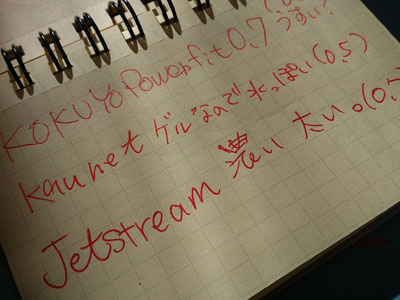 KOKUYO Powerfit 0.7 うすい?
Kaunet ゲルなので水っぽい(0.5)
Jetstream 濃い 太い。(0.7